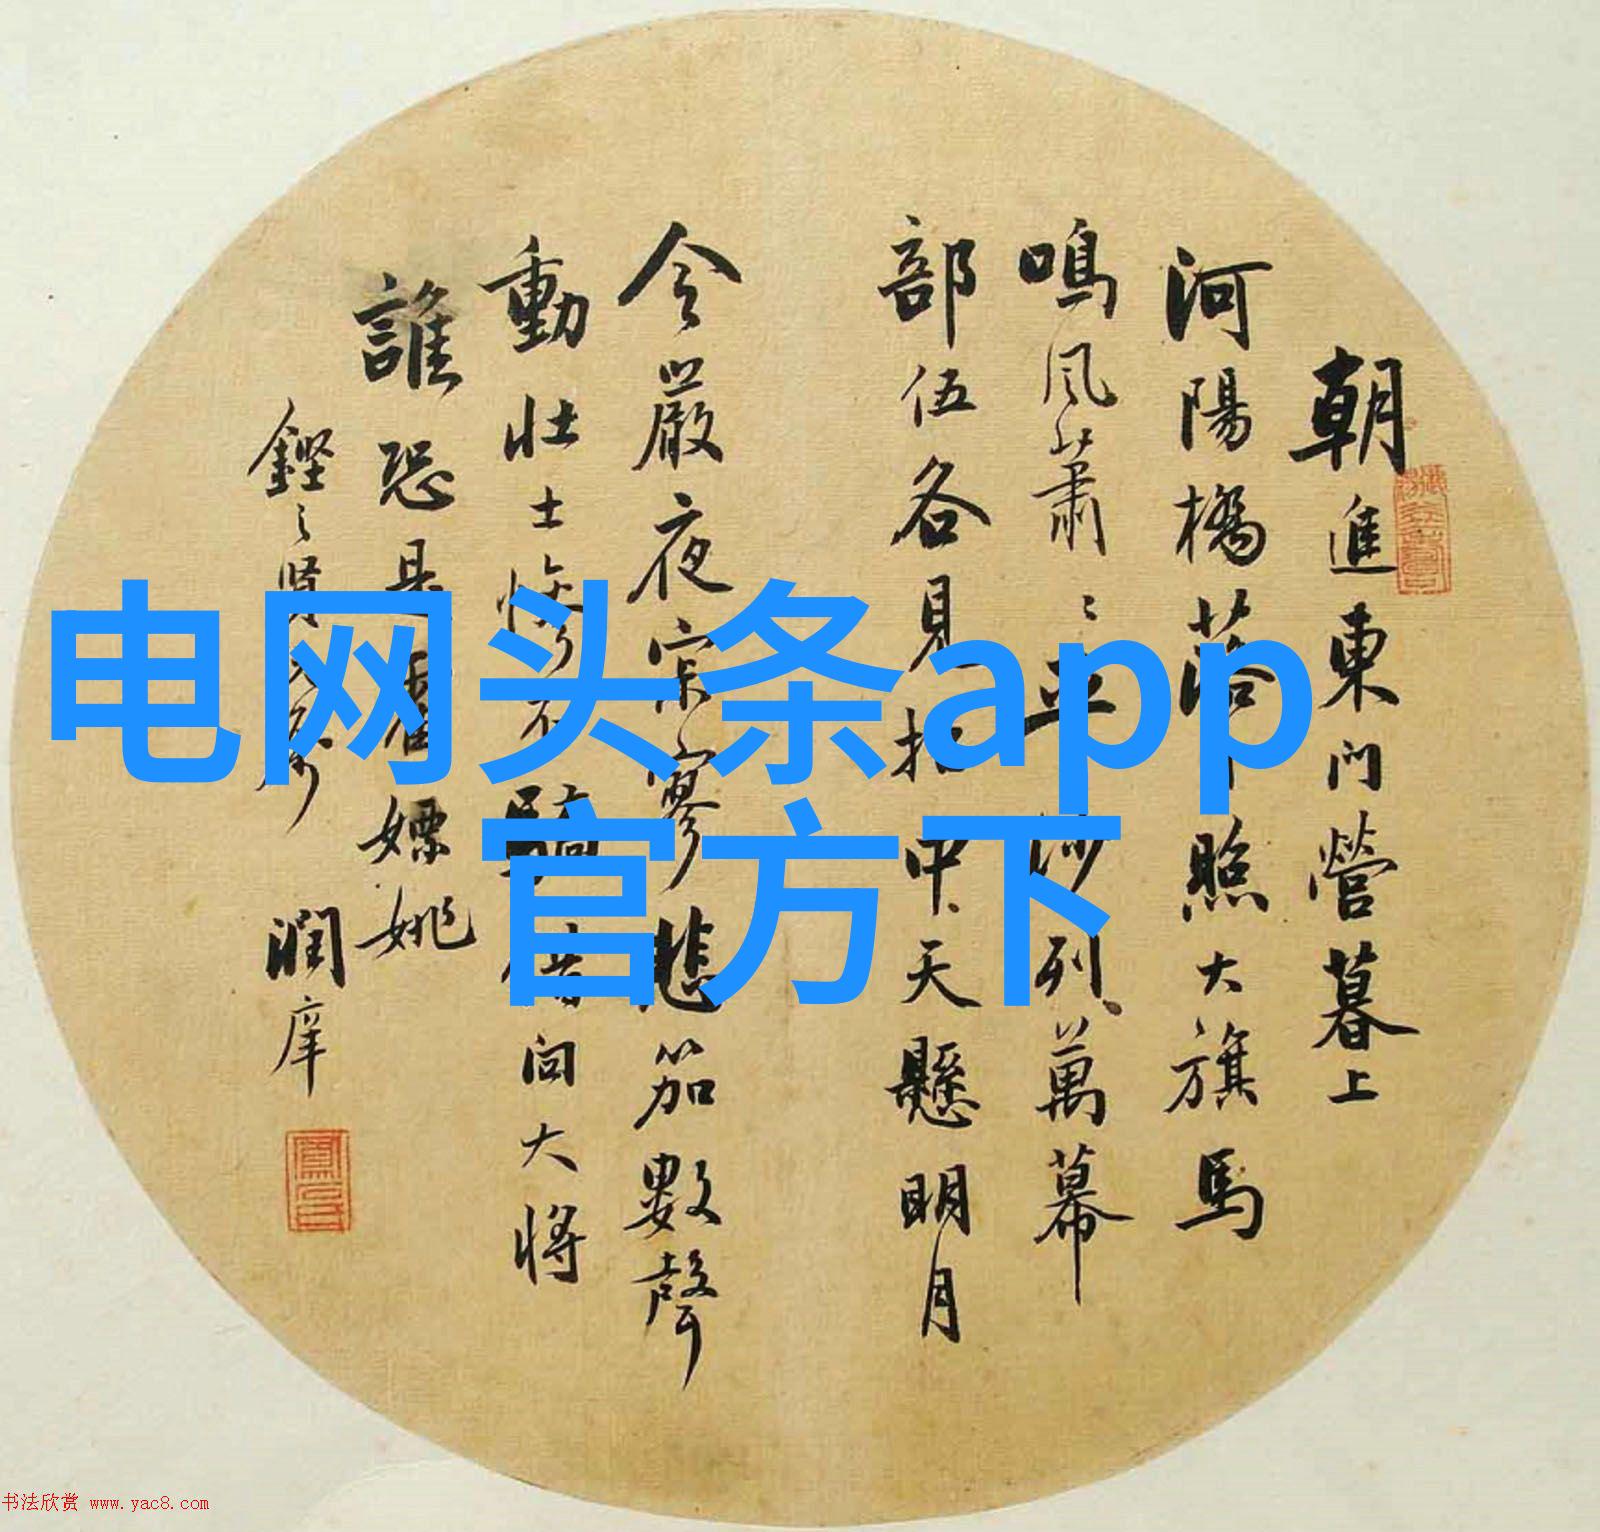 电网头条app
官方下
朝進東門營暮上
河陽橋落照大旗馬
鳴風蕭〻平沙列萬幕
部伍各見招中天懸明月
令嚴夜寂寥悲笳數聲
動壯士慘不驕借問大將
誰恐是霍嫖姚
鏗〻賢
潤庠
书法欣赏 www.yac8.com